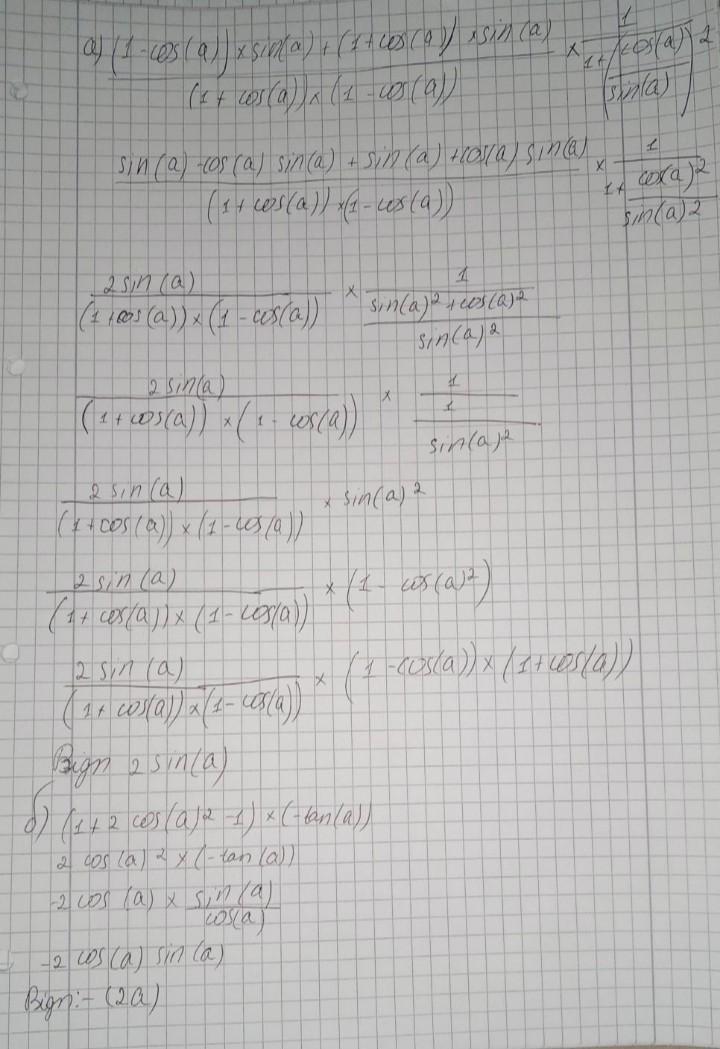 а) ((1-cos(a))×sin(a)+(1+cos(a))×sin(a))/((1+cos(a))×(1-cos(a))) × 1/(1+(cos(a)/sin(a))2)
(sin(a)-cos(a) sin(a)+sin(a)+cos(a) sin(a))/((1+cos(a))×(1-cos(a))) × 1/(1+cos(a)²/sin(a)2)
2 sin(a)/((1+cos(a))×(1-cos(a))) × 1/((sin(a)²+cos(a)²)/sin(a)²)
2 sin(a)/((1+cos(a))×(1-cos(a))) × 1/(1/sin(a)²)
2 sin(a)/((1+cos(a))×(1-cos(a))) × sin(a)²
2 sin(a)/((1+cos(a))×(1-cos(a))) × (1-cos(a)²)
2 sin(a)/((1+cos(a))×(1-cos(a))) × (1-cos(a))×(1+cos(a))
Відп 2 sin(a)
б) (1+2 cos(a)2-1)×(-tan(a))
2 cos(a)²×(-tan(a))
-2 cos(a) × sin(a)/cos(a)
-2 cos(a) sin(a)
Відп:-(2a)